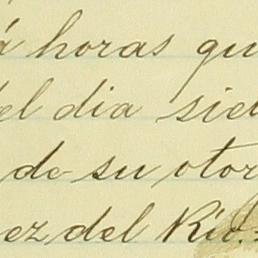 á horas qu
del dia sie
de su otor
ez del Rio.=